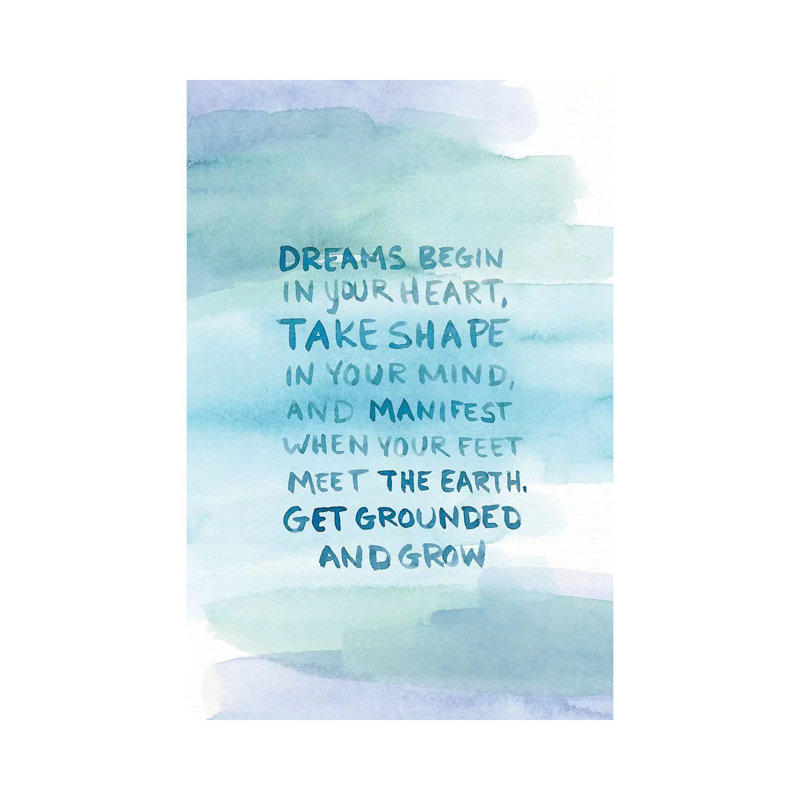 DREAMS BEGIN
IN YOUR HEART,
TAKE SHAPE
IN YOUR MIND,
AND MANIFEST
WHEN YOUR FEET
MEET THE EARTH.
GET GROUNDED
AND GROW